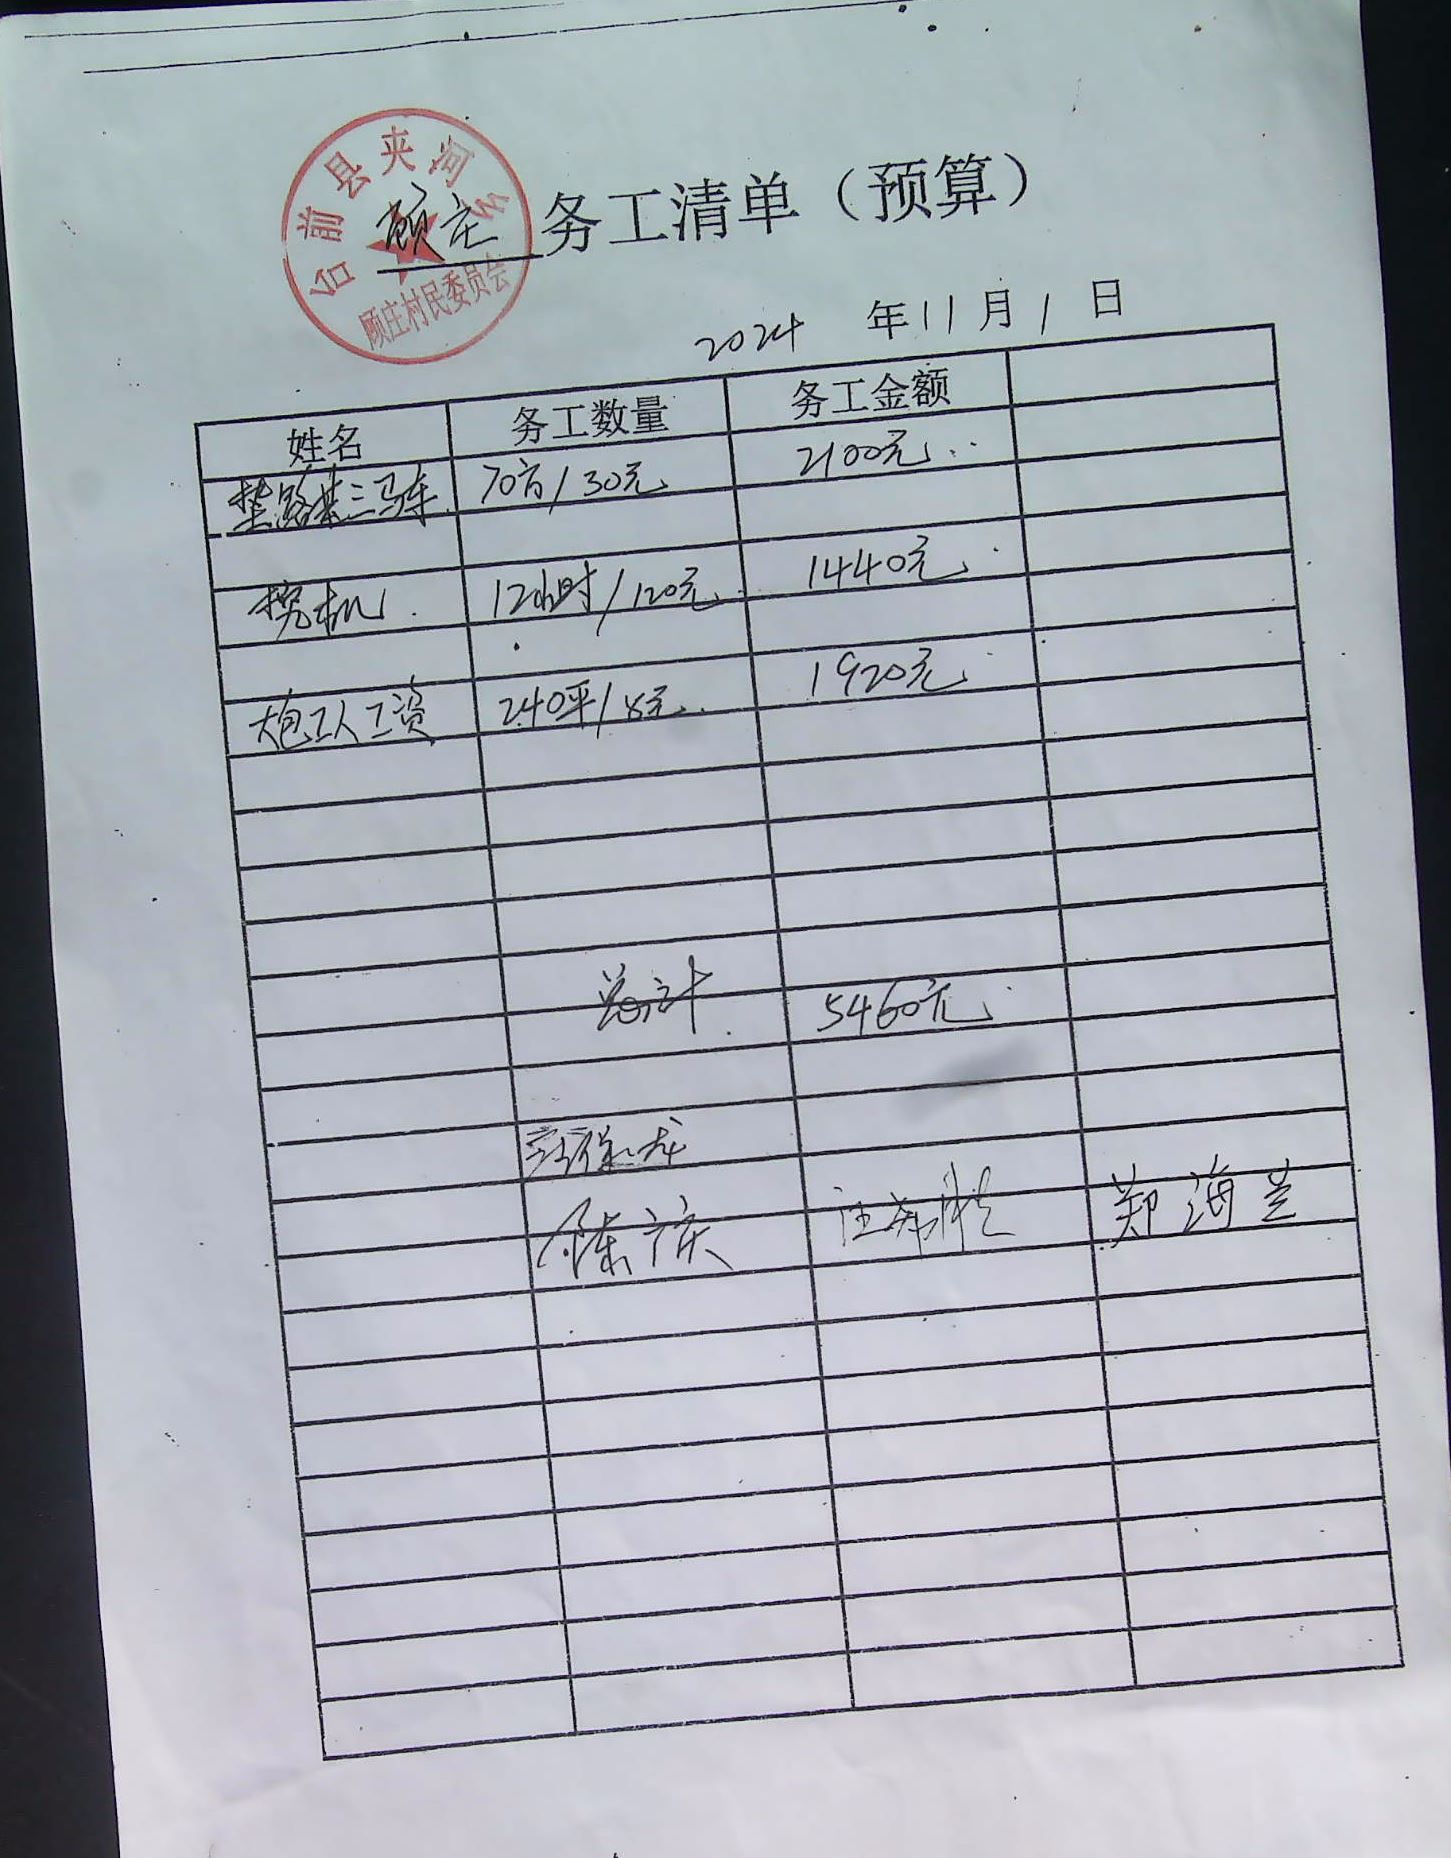 台前县夹河乡
顾庄村民委员会
顾庄 务工清单（预算）
2024 年 11 月 1 日
姓名 务工数量 务工金额
垫路基三马车 70方/30元 2100元
挖机 12小时/120元 1440元
大包工人工资 240平/8元 1920元
总计 5460元
陈庆 郑海兰